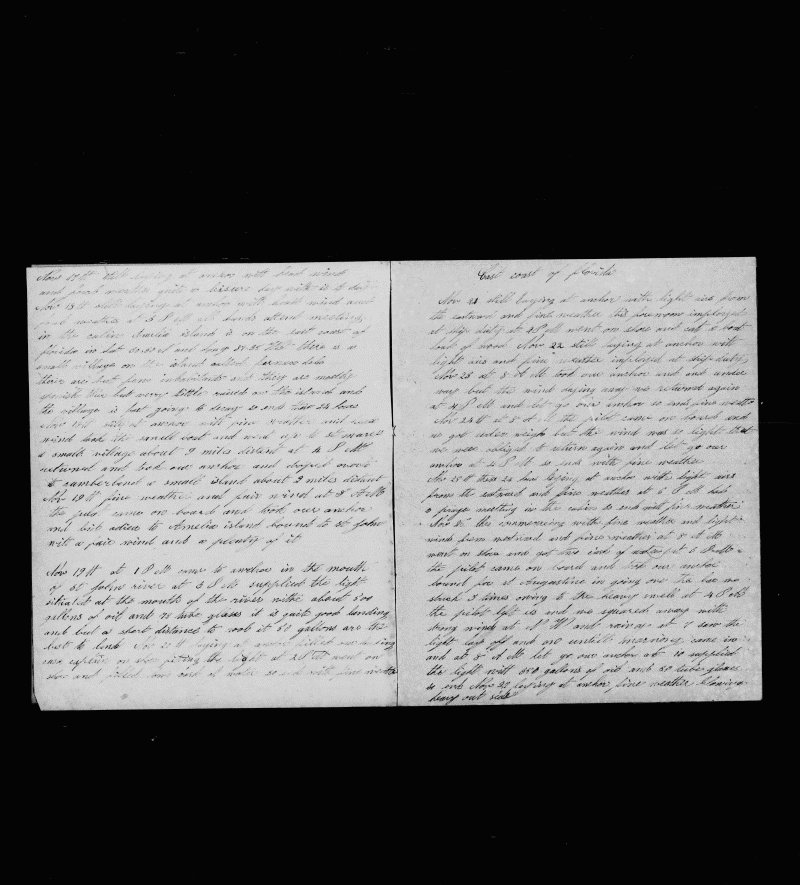 Nov 17th still laying at anchor with head wind
and good weather quite a
Nov 18th still laying at anchor with head wind and
good weather at 3 P M all hands attend meeting
in the cabin Amelia island is on the east coast of
florida in lat and long that there is a
small village on the island called
there are but few inhabitants and they are mostly
spanish there but very little raised on the island and
the village is fast going to decay so ends these 24 hours
Nov at anchor with fine weather and
wind took the small boat and went up to St marys
a small village about 9 miles distant at 4 P M
returned and took our anchor and droped over
to cumberland a small island about 2 miles distant
Nov 19th fine weather and fair wind at 8 A M
the pilot came on board and took our anchor
and bid adieu to Amelia island bound to St Johns
with a fair wind and a plenty of it
Nov 19th at 1 P M came to anchor in the mouth
of St Johns river at 3 P M supplied the light
situated at the mouth of the river with about 500
gallons of oil and 72 tube glasses it is quite good landing
and but a short distance to it 50 gallons are the
best to land Nov 20th laying at anchor
on shore fitting the light at 2 P M went on
shore and filled one cask of water so ends with fine weather
East coast of florida
Nov 21 still laying at anchor with light airs from
the eastward and fine weather this forenoon imployed
at ship duty at 2 P M went on shore and cut a boat
load of wood Nov 22 still laying at anchor with
light airs and fine weather imployed at ship duty
Nov 23 at 8 A M took our anchor and got under
way but the wind dying away we returned again
at 4 P M and let go our anchor so ends fine weather
Nov 24th at 8 A M the pilot came on board and
we got under weigh but the wind was so light that
we were obliged to return again and let go our
anchor at 2 P M so ends with fine weather
Nov 25th these 24 hours laying at anchor with light airs
from the eastward and fine weather at 6 P M had
a prayer meeting in the cabin so ends with fine weather
Nov 26 this commencing with fine weather and light
winds from westward and fine weather at 8 A M
went on shore and got two casks of water at 6 P M
the pilot came on board and took our anchor
bound for St Augustine in going over the bar we
struck 3 times owing to the heavy swell at 4 P M
the pilot left us and we squared away with
strong winds at N W and rain at 7 saw the
light lay off and on untill morning came in
and at 8 A M let go our anchor at 10 supplied
the light with 650 gallons of oil and 50 tube glasses
Nov 28 laying at anchor fine weather blowing
heavy out side